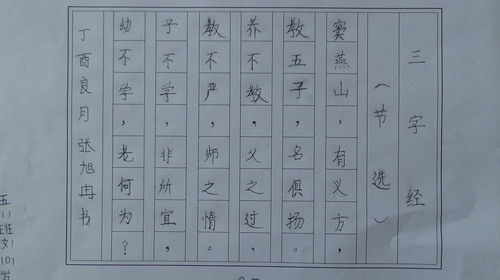 三字经
（节选）
窦燕山，有义方，
教五子，名俱扬。
养不教，父之过，
教不严，师之惰。
子不学，非所宜，
幼不学，老何为？
丁酉良月 张旭冉书
五